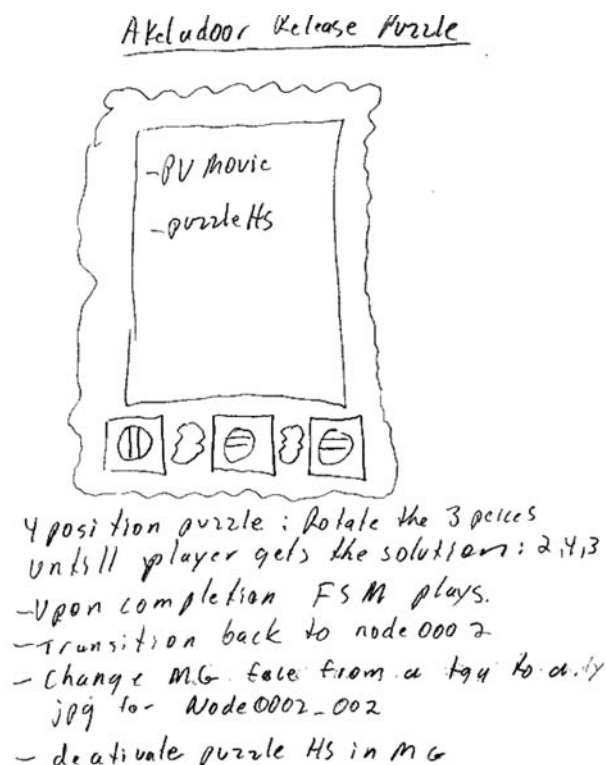 Akeludoor Release Puzzle
-PV Movie
-puzzle Hs
4 position puzzle : Rotate the 3 peices
untill player gets the solution: 2,4,3
-Upon completion FSM plays.
-Transition back to node 0002
- Change MG face from a tga to a
jpg for Node0002_002
- deativate puzzle HS in MG